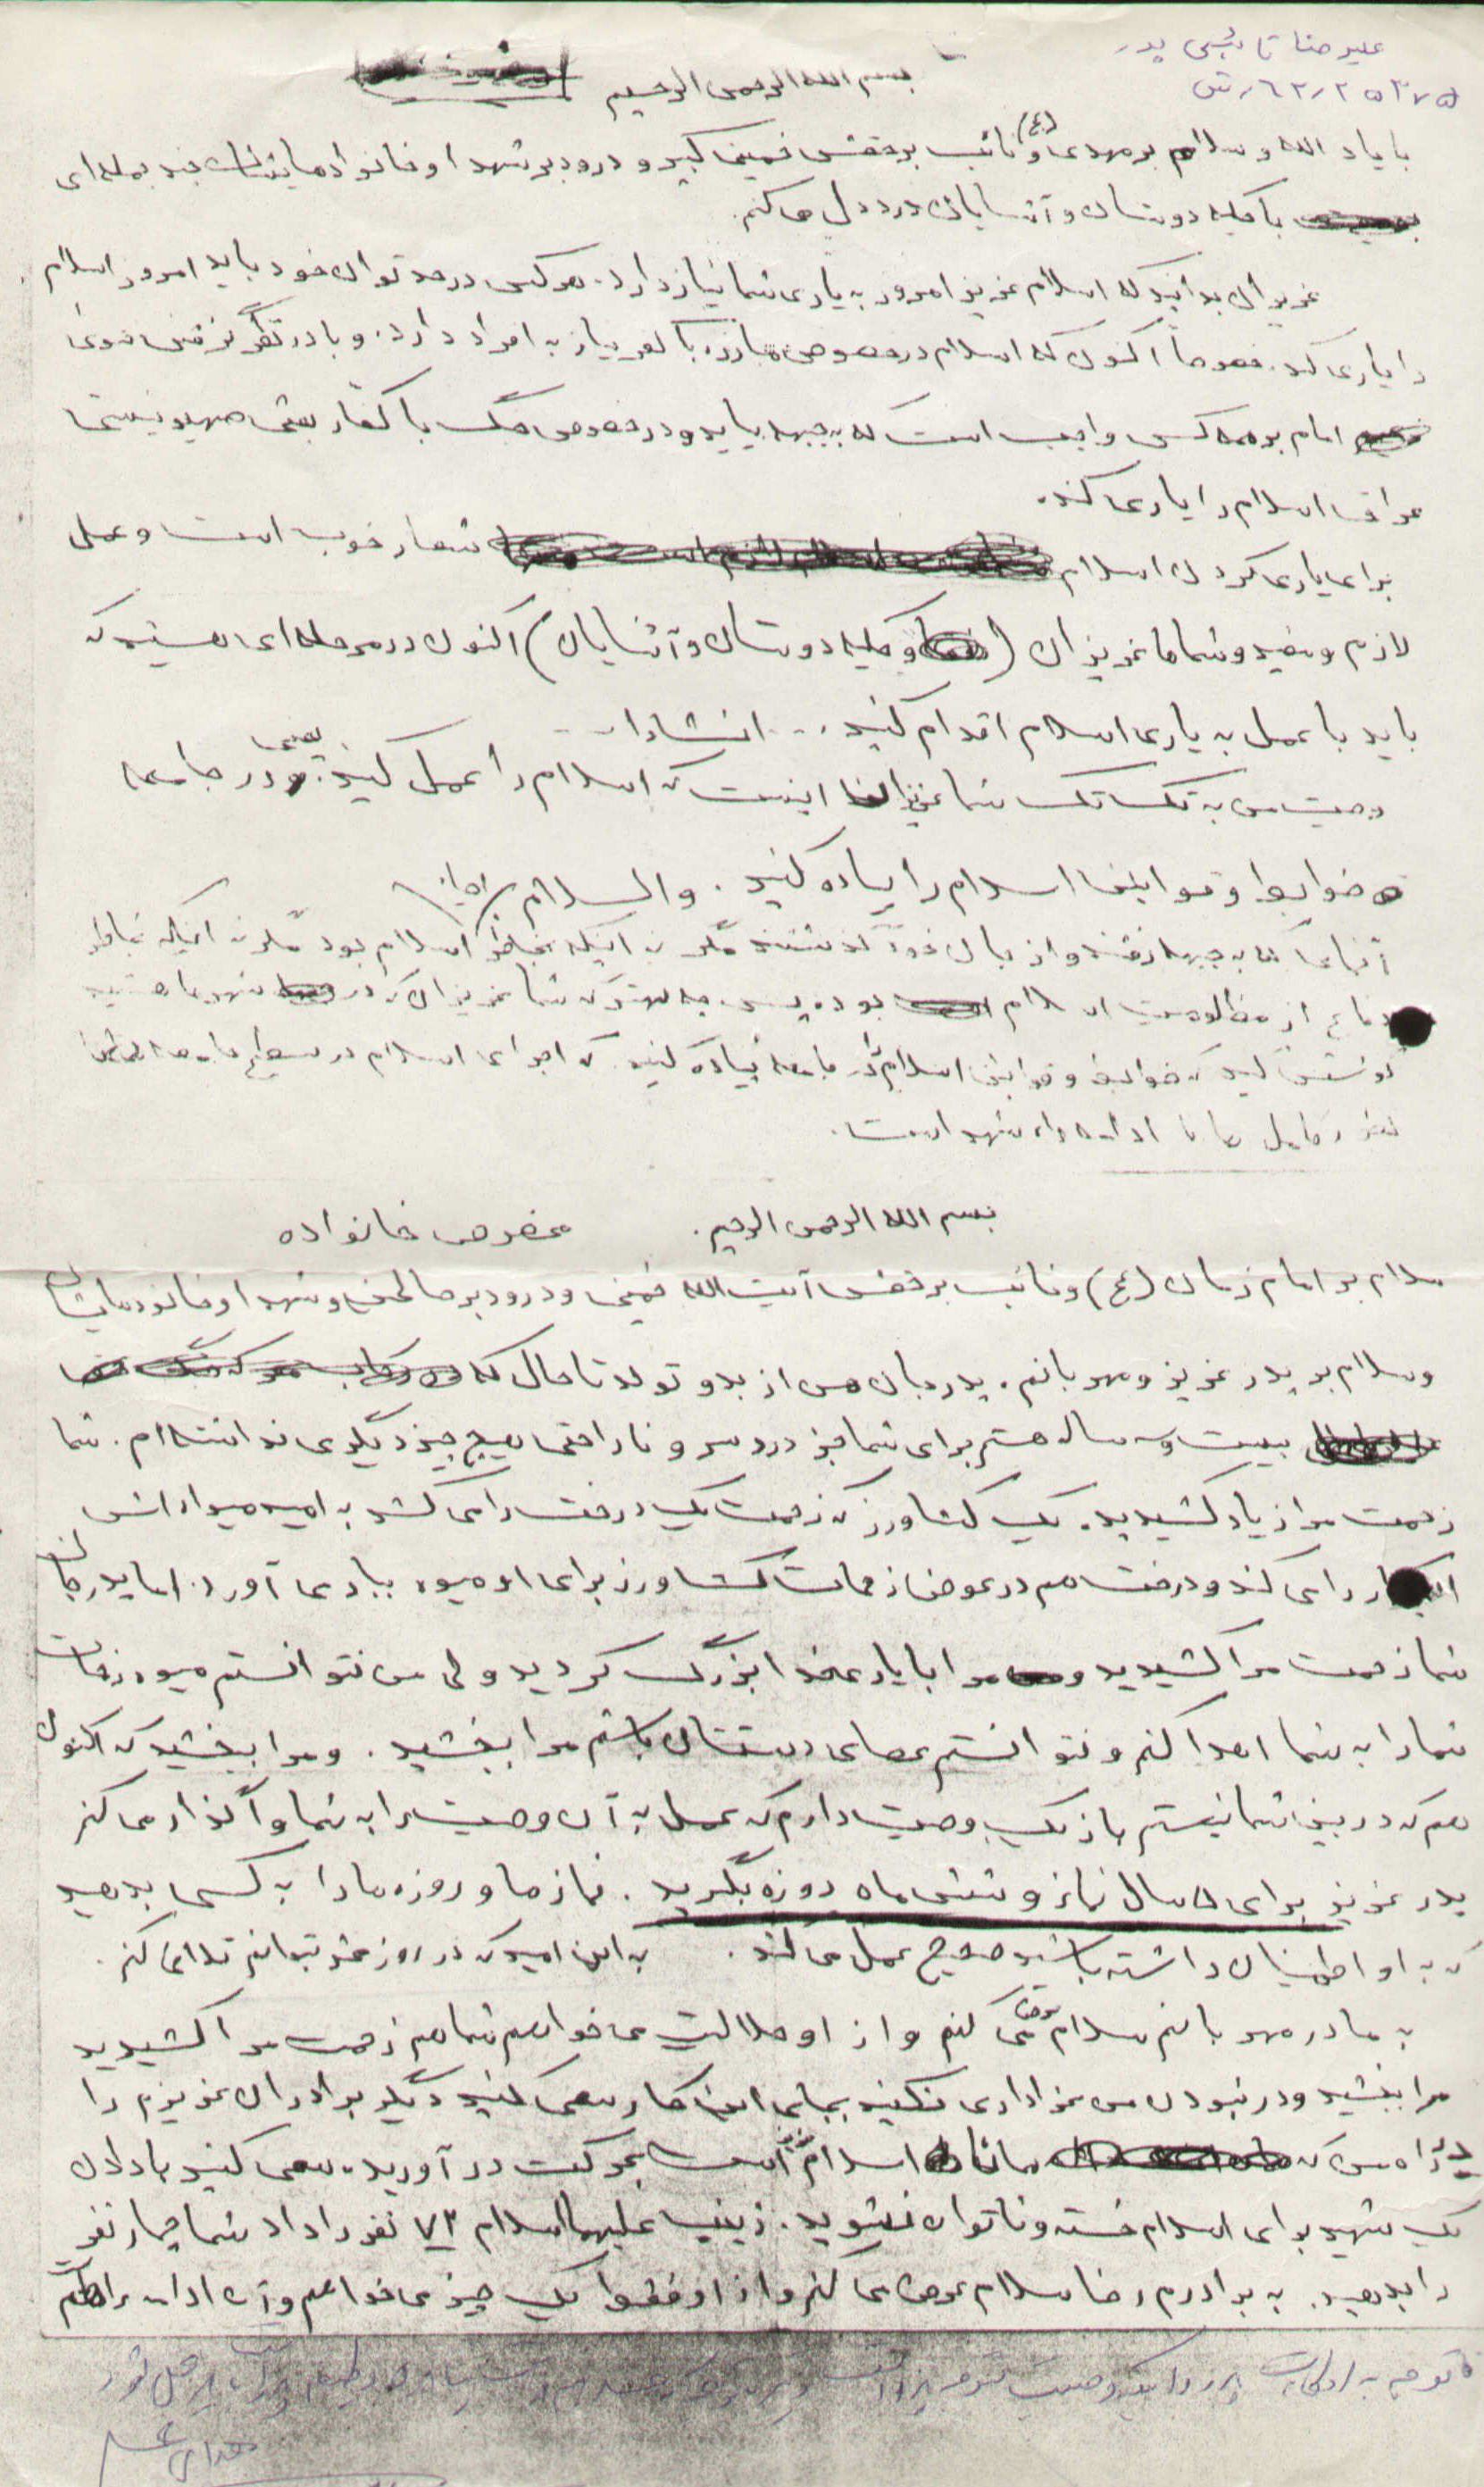 علیرضا تابشی پور
بسم الله الرحمن الرحیم
با یاد الله و سلام بر مهدی (عج) و نائب برحقش خمینی کبیر و درود بر شهدا و خانواده‌هایشان چند جمله‌ای
با کلیه دوستان و آشنایان درد دل می‌کنم.
عزیزان بدانید که اسلام عزیز امروز به یاری شما نیاز دارد. هر کس در حد توان خود باید امروز اسلام
را یاری کند. خصوصاً اکنون که اسلام در خصوص مبارزه با کفر نیاز به افراد دارد. و با در نظر گرفتن فتوی
امام بر همه کس واجب است که به جبهه بیاید و در خصوص جنگ با کفار بعثی صهیونیستی
عراق اسلام را یاری کند.
برای یاری کردن اسلام شعار خوب است و عمل
لازم و مفید و شماها عزیزان (و کلیه دوستان و آشنایان) اکنون در مرحله‌ای هستید که
باید با عمل به یاری اسلام اقدام کنید... انشاءا...
وصیت من به تک تک شما عزیزان اینست که اسلام را عمل کنید. یعنی در جامعه
ضوابط و قوانین اسلام را پیاده کنید. والسلام
آنهایی که به جبهه رفتند و از جان خود گذشتند مگر نه اینکه بخاطر اسلام بود مگر نه اینکه بخاطر
دفاع از مظلومیت اسلام بوده پس چه بهتر که شما عزیزان که در شهرها هستید
کوشش کنید که ضوابط و قوانین اسلام را در جامعه پیاده کنید. که اجرای اسلام در سطح جامعه
همانا ادامه راه شهدا است.
بسم الله الرحمن الرحیم. مخصوص خانواده
سلام بر امام زمان (عج) و نائب برحقش آیت الله خمینی و درود بر صالحین و شهدا و خانوده‌هایشان
و سلام بر پدر عزیز و مهربانم. پدر جان من از بدو تولد تا حال که
بیست و سه ساله هستم برای شما جز دردسر و ناراحتی هیچ چیز دیگری نداشته‌ام. شما
زحمت مرا زیاد کشیدید. یک کشاورز که زحمت یک درخت را می‌کشد به امید میوه‌اش
اینکار را می‌کند و درخت هم در عوض زحمات کشاورز برای او میوه ببار می‌آورد. اما پدر جان
شما زحمت مرا کشیدید و مرا با یاری خدا بزرگ کردید ولی من نتوانستم میوه زحمات
شما را به شما اهدا کنم و نتوانستم عصای دستتان باشم مرا ببخشید. و مرا ببخشید که اکنون
هم که در بین شما نیستم باز یک وصیت دارم که عمل به آن وصیت را به شما واگذار می‌کنم
پدر عزیز برای ۵ سال نماز و شش ماه روزه بگیرید. نمازها و روزه‌ها را به کسی بدهید
که به او اطمینان داشته باشید صحیح عمل می‌کند. به این امید که در روز محشر بتوانم تلافی کنم.
به مادر مهربانم سلام عرض می‌کنم و از او حلالیت می‌خواهم شما هم زحمت مرا کشیدید
مرا ببخشید و در نبودن من عزاداری نکنید بجای این کار سعی کنید دیگر برادران عزیزم را
در راه من که همانا راه اسلام عزیز است بحرکت در آورید. سعی کنید با دادن
یک شهید برای اسلام خسته و ناتوان نشوید. زینب علیها السلام ۷۲ نفر را داد شما چهار نفر
را بدهید. به برادرم رضا سلام عرض می‌کنم و از او فقط یک چیز می‌خواهم و آن ادامه راهم